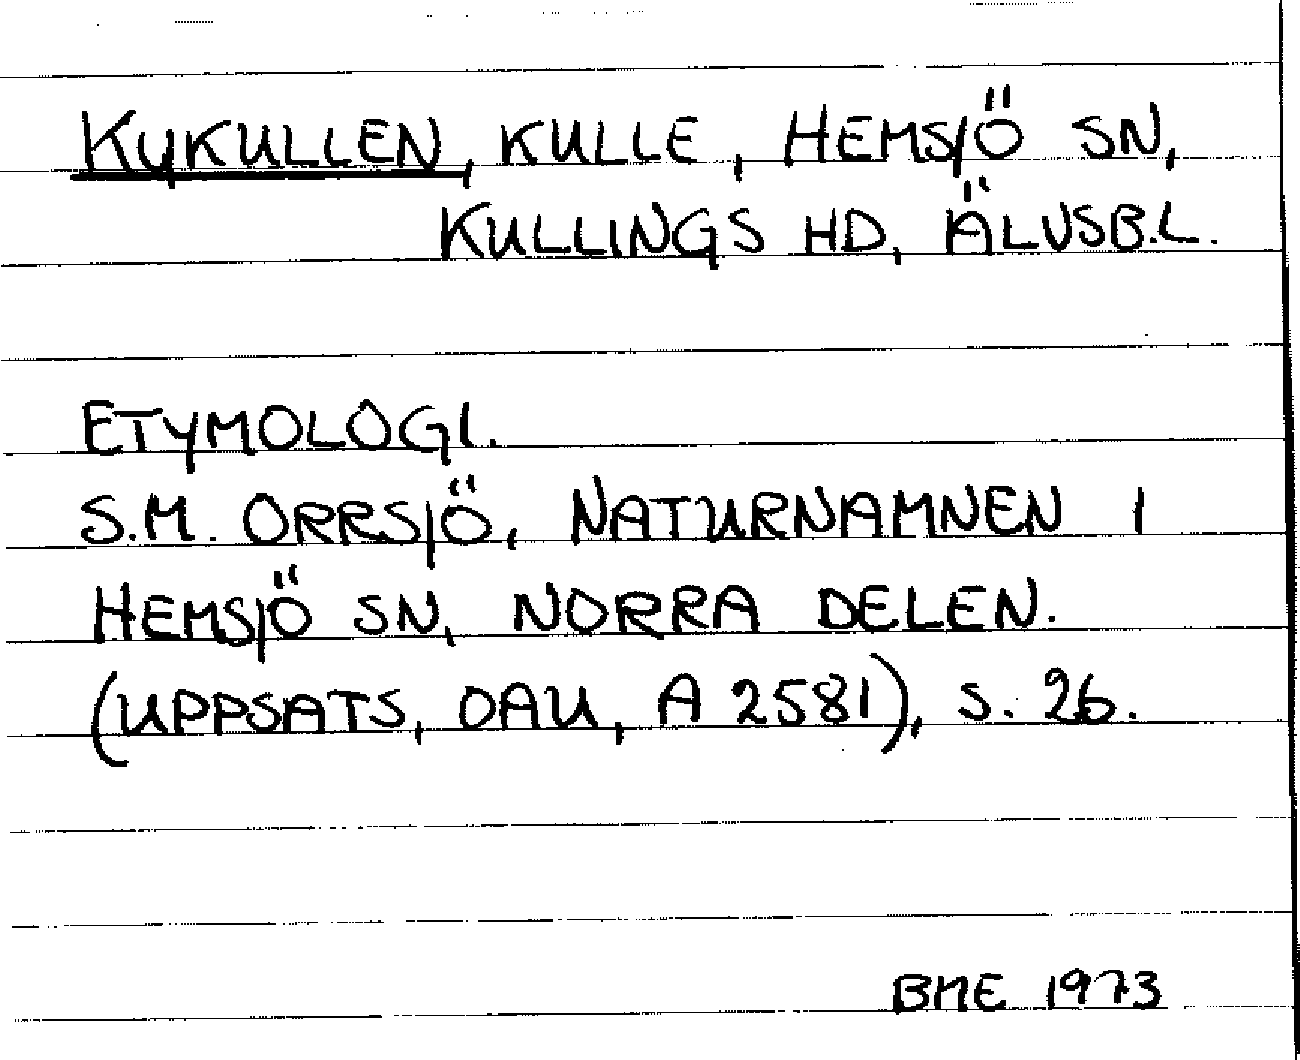 KYKULLEN, KULLE, HEMSJÖ SN,
KULLINGS HD, ÄLVSB.L.
ETYMOLOGI.
S.M. ORRSJÖ, NATURNAMNEN I
HEMSJÖ SN, NORRA DELEN.
(UPPSATS, OAU, A 2581), S. 26.
BME 1973